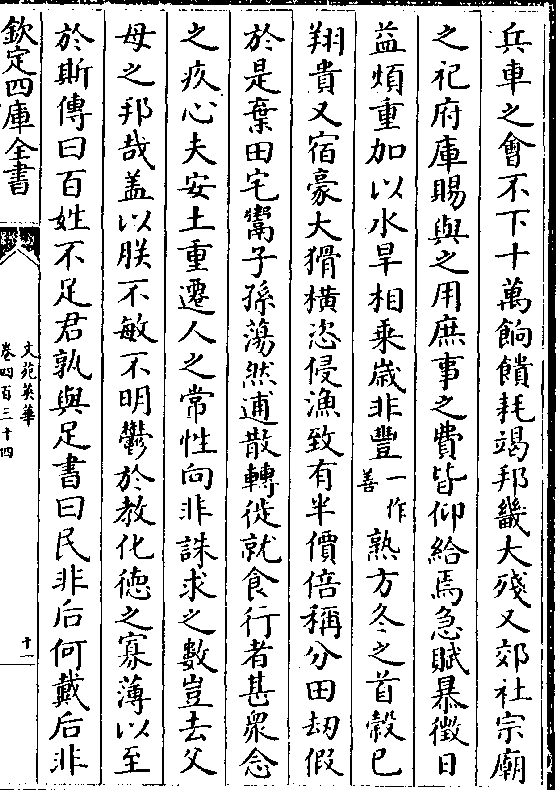 兵車之會不下十萬餉饋耗竭邦畿大殘又郊社宗廟
之祀府庫賜與之用庶事之費皆仰給焉急賦暴徵日
益煩重加以水旱相乘歲非豐一作善熟方冬之首穀已
翔貴又宿豪大猾橫恣侵漁致有半價倍稱分田劫假
於是棄田宅鬻子孫蕩然逋散轉徙就食行者甚衆念
之疚心夫安土重遷人之常性向非誅求之數豈去父
母之邦哉盖以朕不敏不明鬱於教化德之寡薄以至
於斯傳曰百姓不足君孰與足書曰民非后何戴后非
欽定四庫全書
文苑英華
卷四百三十四
十一